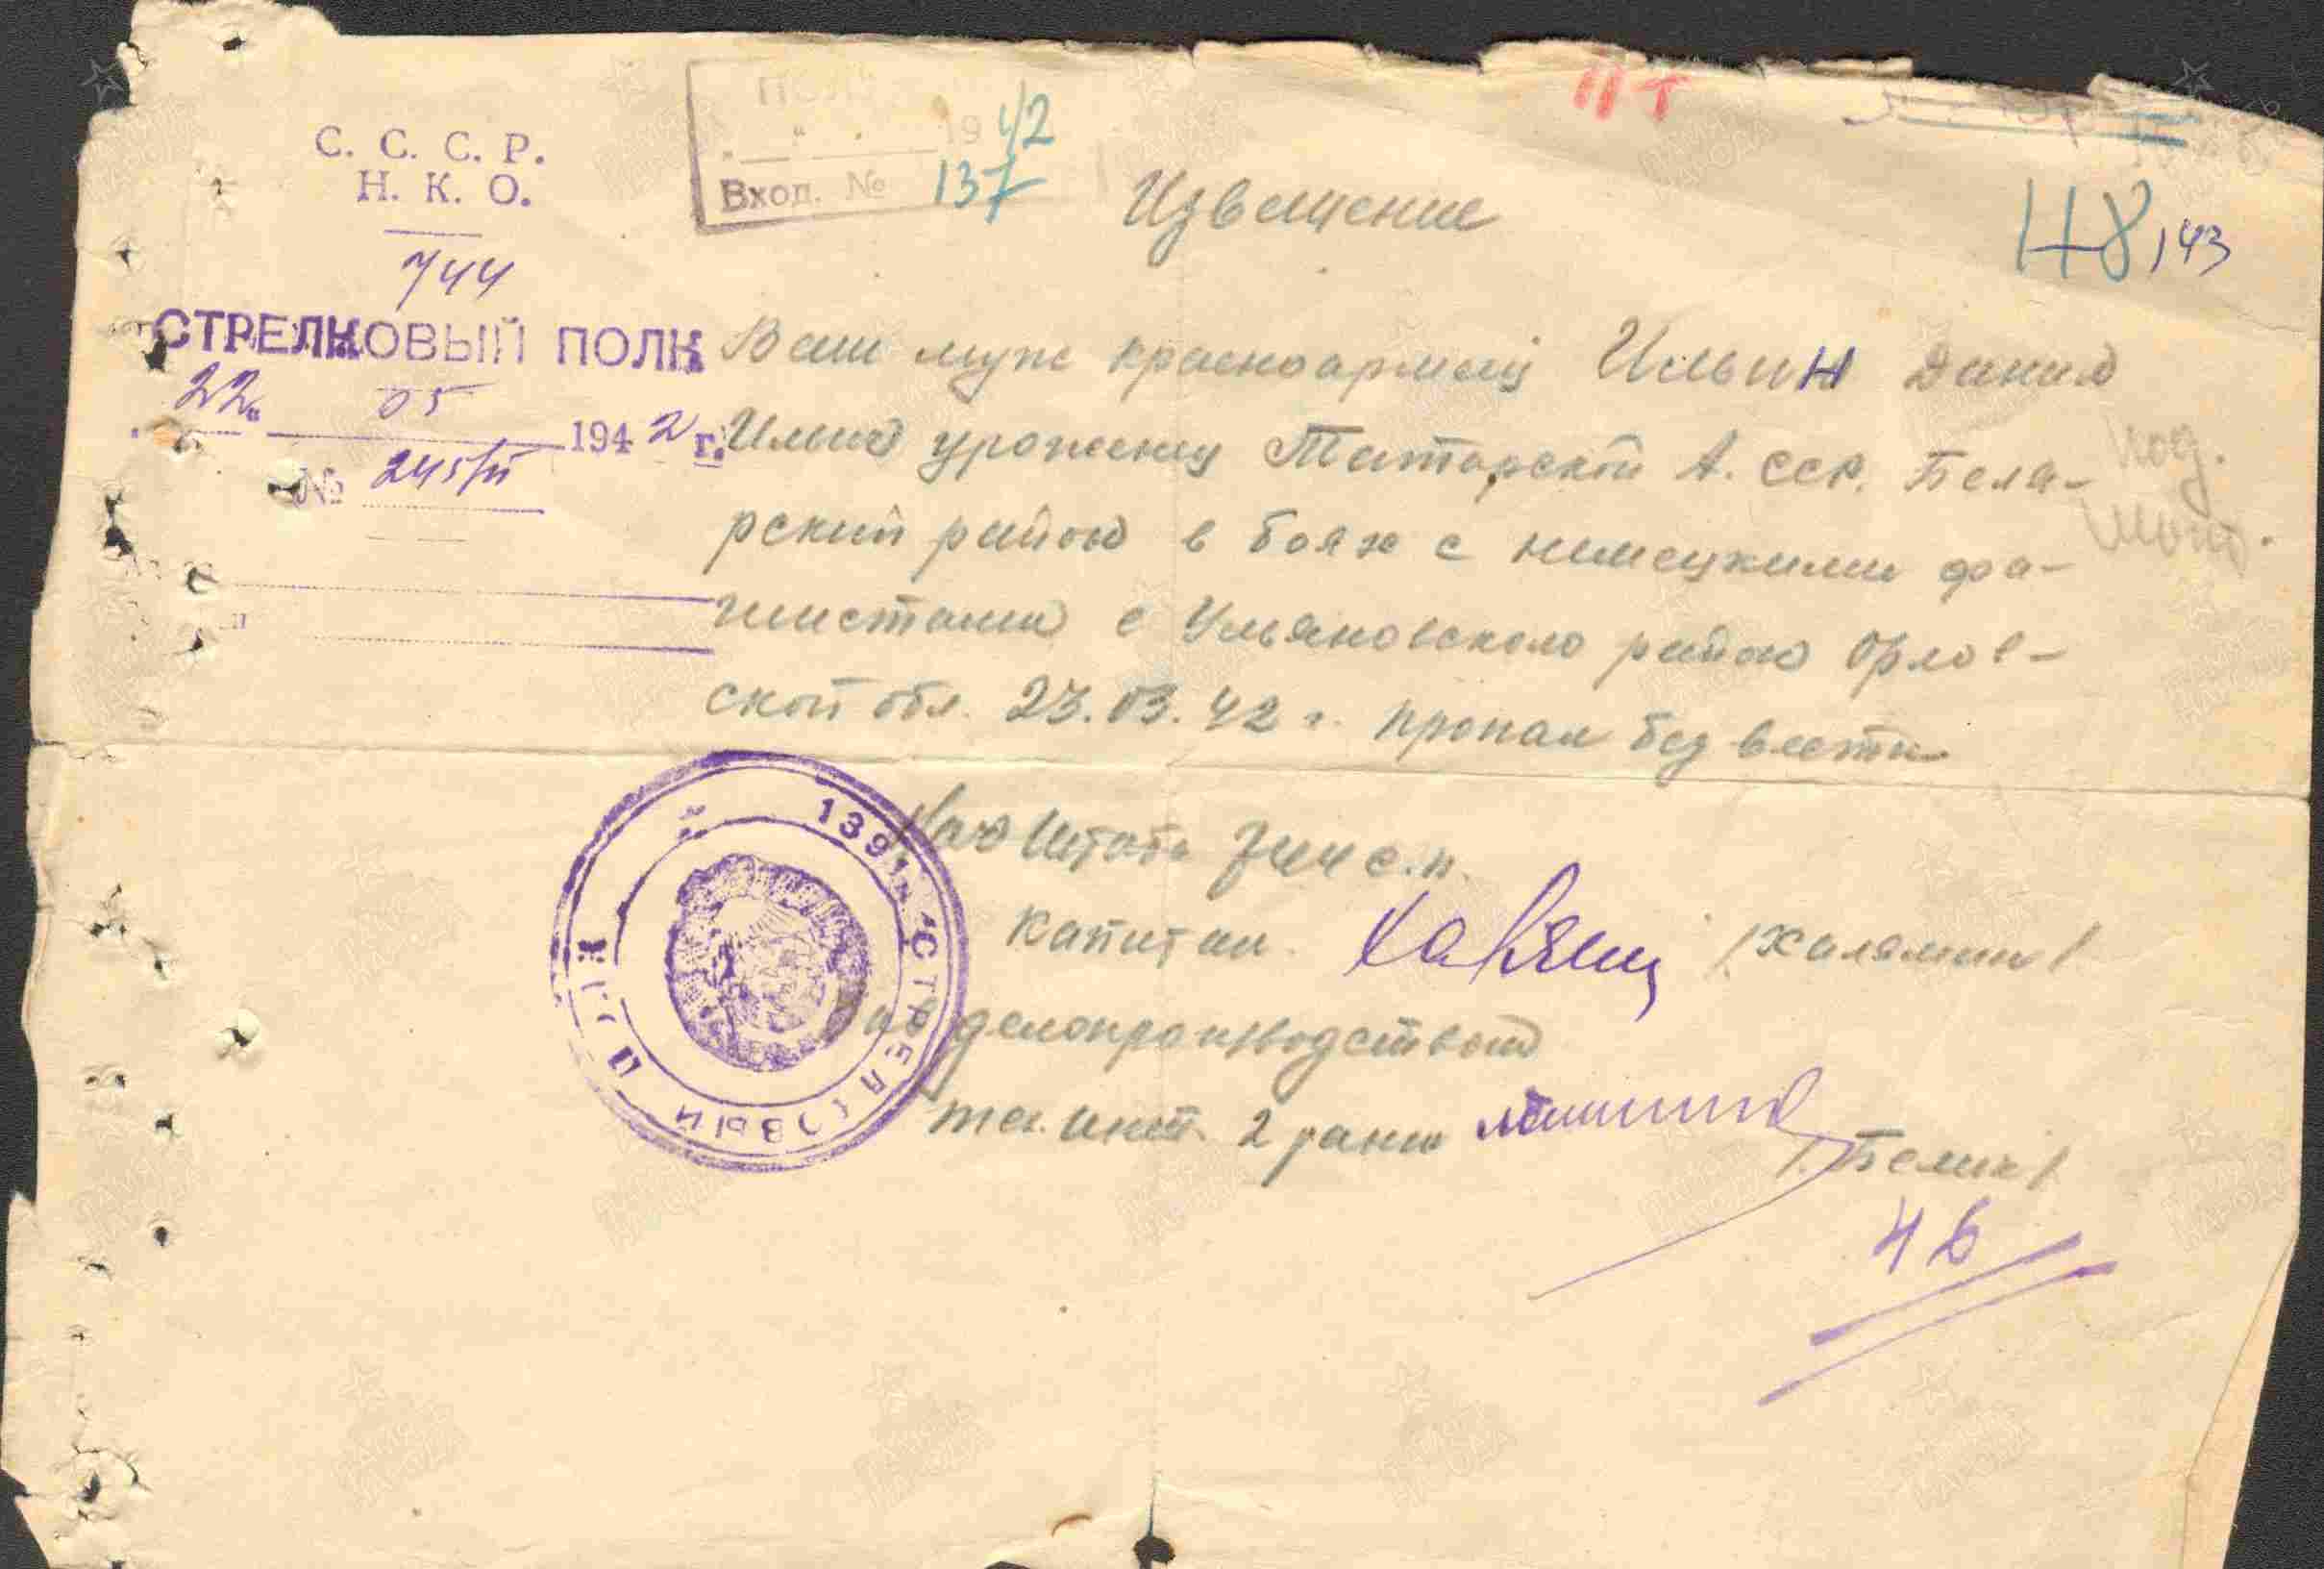 С. С. С. Р.
Н. К. О.
744
СТРЕЛКОВЫЙ ПОЛК
22 05 1942 г.
№ 245/п
1942
Вход. № 137
пт
48,143
Извещение
Ваш муж красноармеец Ильин Данил
Ильич уроженец Татарской А. ССР. Бела-
рский район в боях с немецкими фа-
шистами с Ульяновского район Орлов-
ской обл. 23.03.42 г. пропал без вести
Нач Штаба 744 с.п.
капитан /Халямин/
Зав делопроизводством
тех. инт. 2 ранга /Белик/
1391й СТРЕЛКОВЫЙ ПОЛК
46